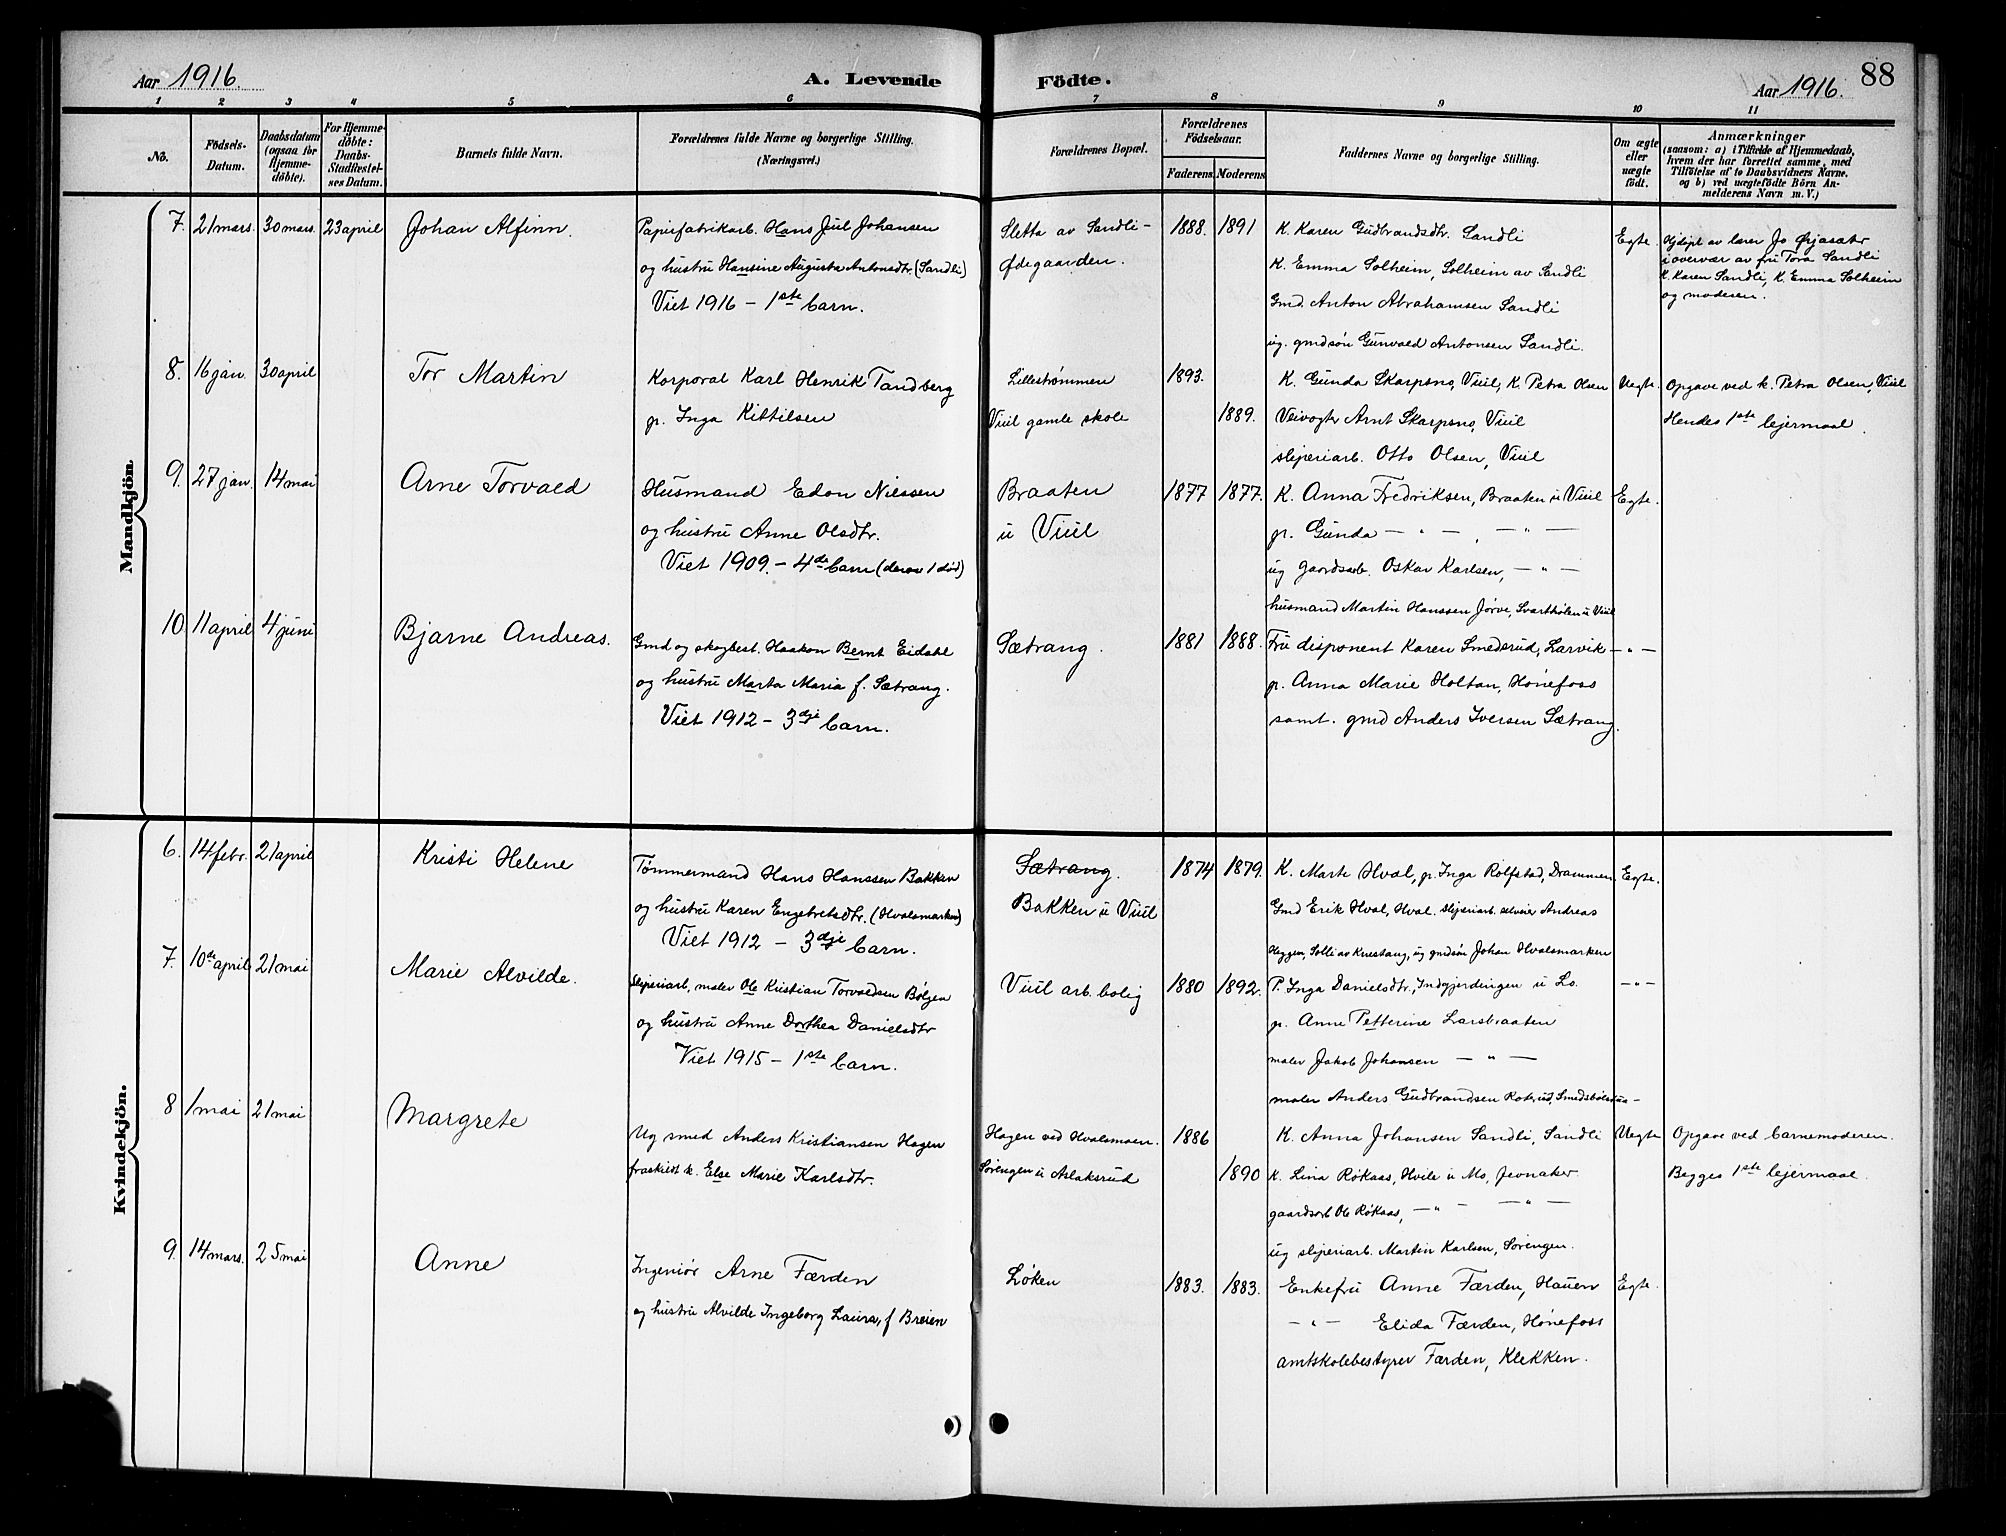 Aar 1916. A. Levende Födte. Aar 1916. 88
1 2 3 4 5 6 7 8 9 10 11
No. Födsels-Datum. Daabsdatum (ogsaa for Hjemme-döbte). For Hjemme-döbte: Daabs-Stadfestel-ses Datum. Barnets fulde Navn. Forældrenes fulde Navne og borgerlige Stilling. (Næringsvei.) Forældrenes Bopæl. Forældrenes Födselsaar. Faderens Moderens Faddernes Navne og borgerlige Stilling. Om ægte eller uægte födt. Anmærkninger
(saasom: a) i Tilfælde af Hjemmedaab,
hvem der har forrettet samme, med
Tilföielse af to Daabsvidners Navne.
og b) ved uægtefödte Börn An-
melderens Navn m. V.)
Mandkjön.
7. 21 mars. 30 mars. 23 april Johan Alfinn. Papirfabrikarb. Hans Juul Johansen
og hustru Hansine Augusta Antonsdtr (Sandli)
Viet 1916 - 1ste barn.
Sletta av Sandli-
Ødegaarden.
1888. 1891
K. Karen Gudbrandsdtr. Sandli
K. Emma Solheim, Solheim av Sandli
Gmd. Anton Abrahamsen Sandli
ug. gmdsøn Gunvald Antonsen Sandli.
Egte.
Hjdøpt av lærer Jo Ørjasæter
i overvær av fru Tora Sandli
K. Karen Sandli, K. Emma Solheim
og moderen.
8. 16 jan. 30 april Tor Martin Korporal Karl Henrik Tandberg
p. Inga Kittilsen
Lillestrømmen
Viul gamle skole
1893.
1889.
K. Gunda Skarpsno, Viul, K. Petra Olsen
Veivogter Arnt Skarpsno, Viul
sliperiarb. Otto Olsen, Viul
Uegte.
Opgave ved k. Petra Olsen, Viul
Hendes 1ste lejermaal.
9. 27 jan. 14 mai Arne Torvald Husmand Edon Nilssen
og hustru Anne Olsdtr.
Viet 1909. - 4de barn (derav 1 død)
Braaten
u Viul
1877 1877.
K. Anna Fredriksen, Braaten u Viul
p. Gunda - " - , - " -
ug gaardsarb. Oskar Karlsen, - " -
husmand Martin Hanssen Jørve, Svarthølen u Viul
Egte.
10. 11 april 4 juni Bjarne Andreas. Gmd og skogbest. Haakon Bernt Eidahl
og hustru Marta Maria f. Sætrang.
Viet 1912 - 3dje barn.
Sætrang.
1881 1888.
Fru disponent Karen Smedsrud, Larvik
p. Anna Marie Holtan, Hønefoss
samt. gmd Anders Iversen Sætrang.
- " -
Kvindekjön.
6. 14 febr. 21 april Kristi Helene Tømmermand Hans Hanssen Bakken
og hustru Karen Engebretsdtr. (Hvalsmarken)
Viet 1912 - 3dje barn.
Sætrang.
Bakken u Viul
1874 1879.
K. Marte Hval, p. Inga Rolfstad, Drammen
Gmd Erik Hval, Hval. sliperiarb. selveier Andreas
Heggen, Solli av Knestang, ug gmdsøn Johan Hvalsmarken
Egte.
7. 10de april 21 mai Marie Alvilde. Sliperiarb, maler Ole Kristian Torvaldsen Bølgen
og hustru Anne Dorthea Danielsdtr
Viet 1915 - 1ste barn.
Viul arb. bolig
1880 1892.
P. Inga Danielsdtr., Indgjerdingen u Lo.
p. Anne Petterine Larsbraaten
maler Jakob Johansen - " -
maler Anders Gudbrandsen Roterud,
- " -
8 1 mai 21 mai Margrete Ug smed Anders Kristiansen Hagen
fraskilt k. Else Marie Karlsdtr.
Hagen ved Hvalsmoen.
Sørengen u Aslaksrud
1886
1890
K. Anna Johansen Sandli, Sandli
K. Lina Røkaas, Hvile u Mo, Jevnaker
gaardsarb Ole Røkaas, - " - - " -
ug sliperiarb. Martin Karlsen, Sørengen.
Uegte
Opgave ved barnemoderen.
Begges 1ste lejermaal.
9. 14 mars. 25 mai Anne Ingeniør Arne Færden
og hustru Alvilde Ingeborg Laura, f Breien
Løken
1883. 1883.
Enkefru Anne Færden, Hauen
- " - Elida Færden, Hønefoss
amtskolebestyrer Færden, Klekken.
Egte.